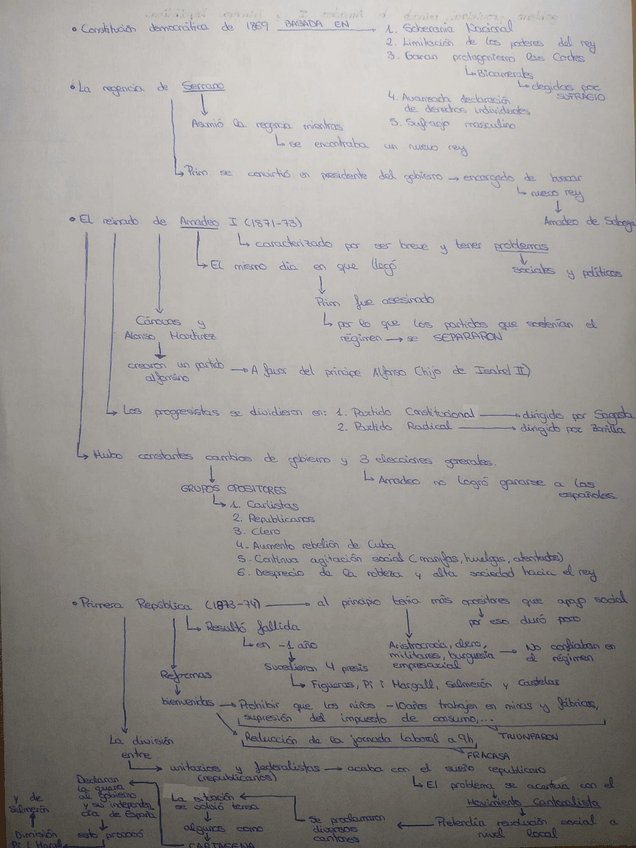 • Constitución democrática de 1869 BASADA EN 1. Soberanía Nacional
2. Limitación de los poderes del rey
3. Ganan protagonismo las Cortes
↳ Bicamerales
↳ elegidas por SUFRAGIO
4. Avanzada declaración
de derechos individuales
5. Sufragio masculino
• La regencia de Serrano
Asumió la regencia mientras
↳ se encontraba un nuevo rey
↳ Prim se convirtió en presidente del gobierno → encargado de buscar
↳ nuevo rey
Amadeo de Saboya
• El reinado de Amadeo I (1871-73)
↳ caracterizado por ser breve y tener problemas
sociales y políticos
↳ El mismo día en que llegó
Prim fue asesinado
↳ por lo que los partidos que sostenían el
régimen → se SEPARARON
Cánovas y
Alonso Martínez
crearon un partido
alfonsino → A favor del príncipe Alfonso (hijo de Isabel II)
↳ Los progresistas se dividieron en: 1. Partido Constitucional → dirigido por Sagasta
2. Partido Radical → dirigido por Zorrilla
↳ Hubo constantes cambios de gobierno y 3 elecciones generales.
↳ Amadeo no logró ganarse a los
españoles
GRUPOS OPOSITORES
↳ 1. Carlistas
2. Republicanos
3. Clero
4. Aumento rebelión de Cuba
5. Continua agitación social (manifas, huelgas, atentados)
6. Desprecio de la nobleza y alta sociedad hacia el rey
• Primera República (1873-74) → al principio tenía más opositores que apoyo social
por eso duró poco
↳ Resultó fallida
↳ en -1 año
Sucedieron 4 presis
↳ Figueras, Pi i Margall, Salmerón y Castelar
Aristocracia, clero,
militares, burguesía
empresarial → No confiaban en
el régimen
Reformas
bienvenidas → Prohibir que los niños -10años trabajen en minas y fábricas,
supresión del impuesto de consumo,...
TRIUNFARON
Reducción de la jornada laboral a 9h
FRACASA
La división
entre
↳ unitarios y federalistas → acaba con el sueño republicano
(republicanos)
↳ El problema se acentua con el
Movimiento Cantonalista
Pretendía revolución social a
nivel local
Se proclamaron
diversos
cantones
La situación
se volvió tensa
algunos como
CARTAGENA
Declaran
la guerra
al gobierno
y su
de España
esto provocó
Dimisión
Pi i Margall
y de
Salmerón